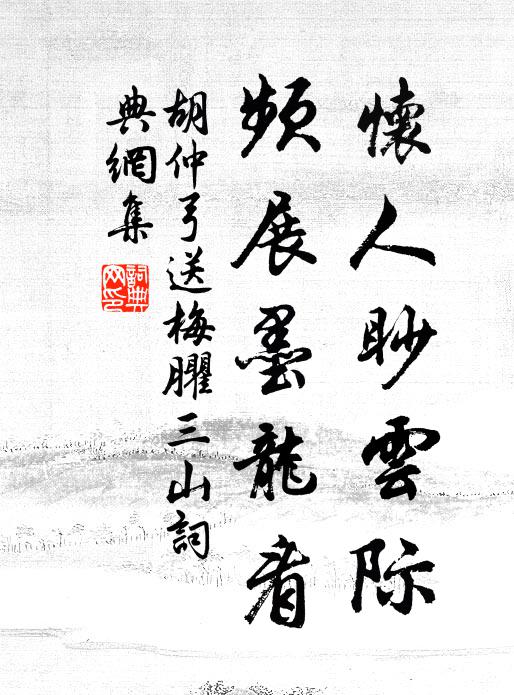 懷人眇雲際
頻展墨龍看
胡仲弓送梅臞三山詞
典網集
詞典網印